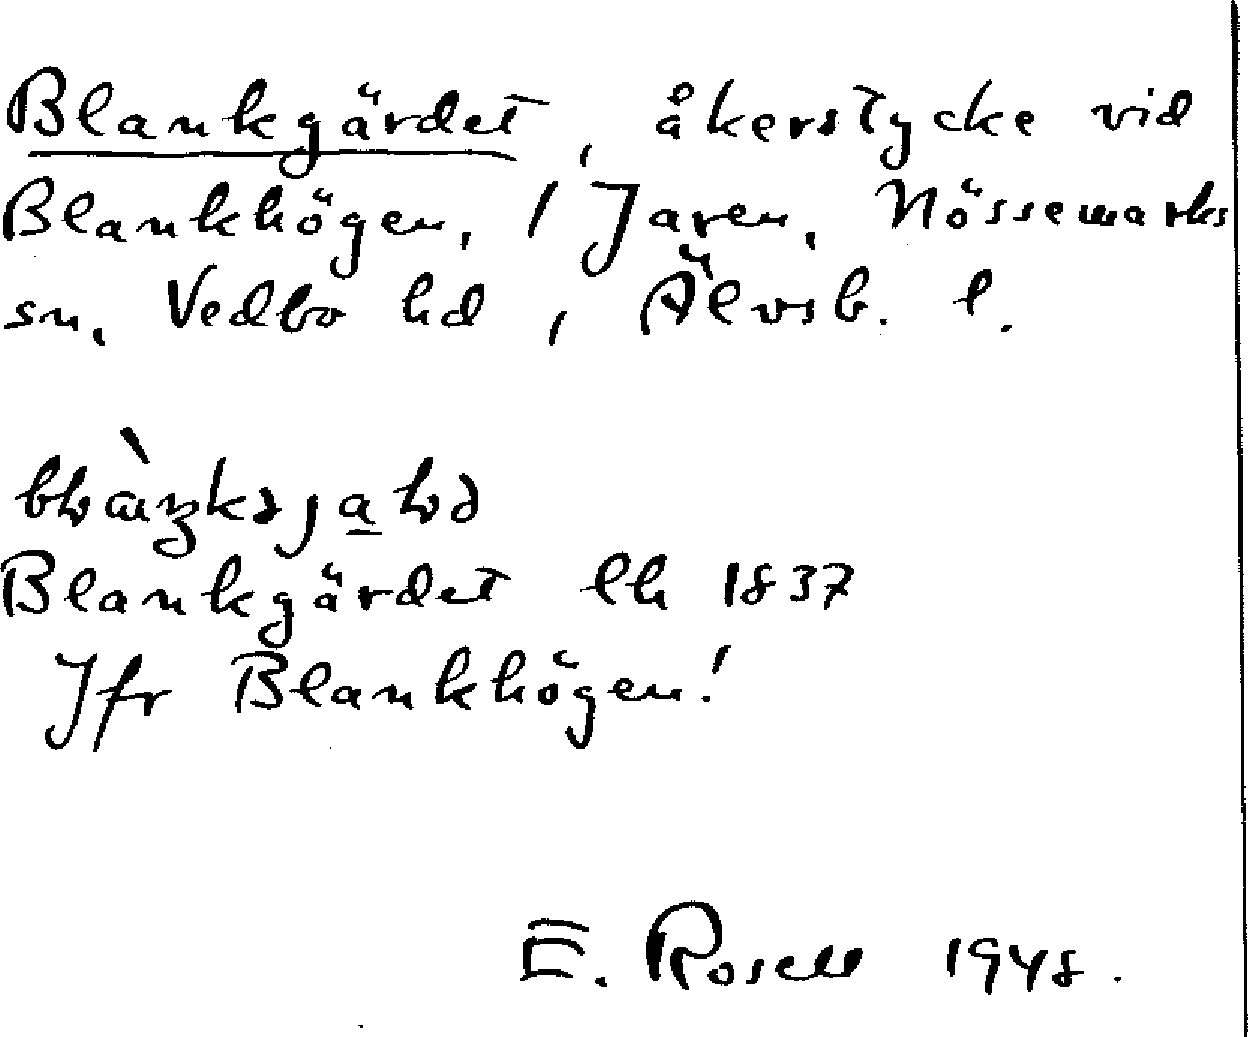 Blankgärdet, åkerstycke vid
Blankhögen, 1 Jaren, Nössemarks
sn, Vedbo hd, Älvsb. l.
Blankgärdet lh 1837
Jfr Blankhögen!
E. Rosell 1948.